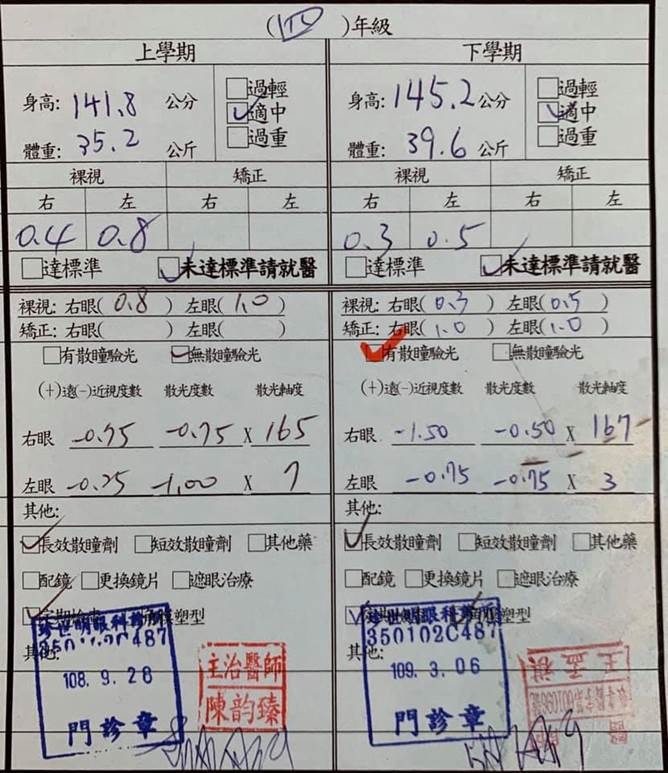 ( )年級
上學期
身高: 141.8 公分
體重: 35.2 公斤
過輕
適中
過重
裸視 矯正
右 左 右 左
0.4 0.8
達標準 未達標準請就醫
裸視: 右眼( 0.8 ) 左眼( 1.0 )
矯正: 右眼( ) 左眼( )
有散瞳驗光 無散瞳驗光
(+)遠(-)近視度數 散光度數 散光軸度
右眼 -0.75 -0.75 X 165
左眼 -0.25 -1.00 X 7
其他:
長效散瞳劑 短效散瞳劑 其他藥
配鏡 更換鏡片 遮眼治療
定期檢查 角膜塑型
其他:
108.9.28
門診章
主治醫師
陳韵臻
下學期
身高: 145.2 公分
體重: 39.6 公斤
過輕
適中
過重
裸視 矯正
右 左 右 左
0.3 0.5
達標準 未達標準請就醫
裸視: 右眼( 0.3 ) 左眼( 0.5 )
矯正: 右眼( 1.0 ) 左眼( 1.0 )
有散瞳驗光 無散瞳驗光
(+)遠(-)近視度數 散光度數 散光軸度
右眼 -1.50 -0.50 X 167
左眼 -0.75 -0.75 X 3
其他:
長效散瞳劑 短效散瞳劑 其他藥
配鏡 更換鏡片 遮眼治療
塑型
其他:
350102C487
109.3.06
門診章